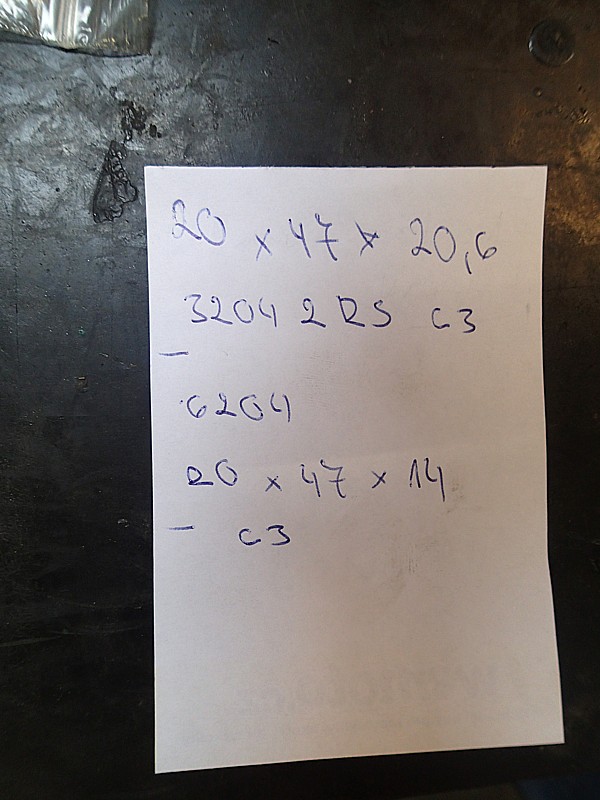 20 x 47 x 20,6
3204 2RS C3
-
6204
20 x 47 x 14
- C3